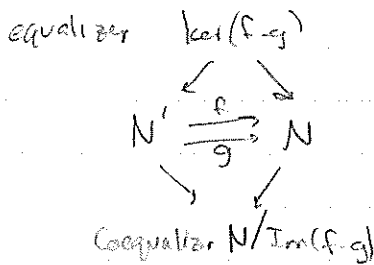 equalizer ker(f-g)
f
N' ⇉ N
g
Coequalizer N/Im(f-g)